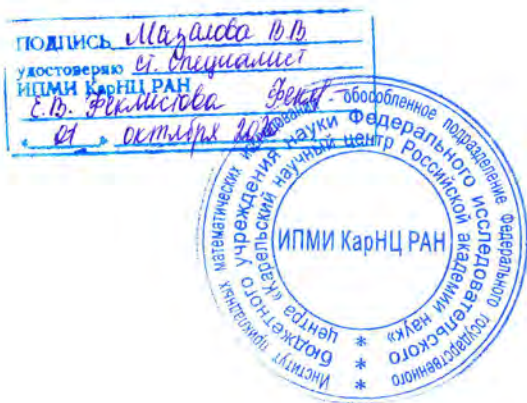 ПОДПИСЬ Мазалова В.В.
удостоверяю ст. специалист
ИПМИ КарНЦ РАН
Е.В. Феклистова
"01" октября 2020
Институт прикладных математических исследований обособленное подразделение Федерального государственного
бюджетного учреждения науки Федерального исследовательского
центра «Карельский научный центр Российской академии наук»
ИПМИ КарНЦ РАН